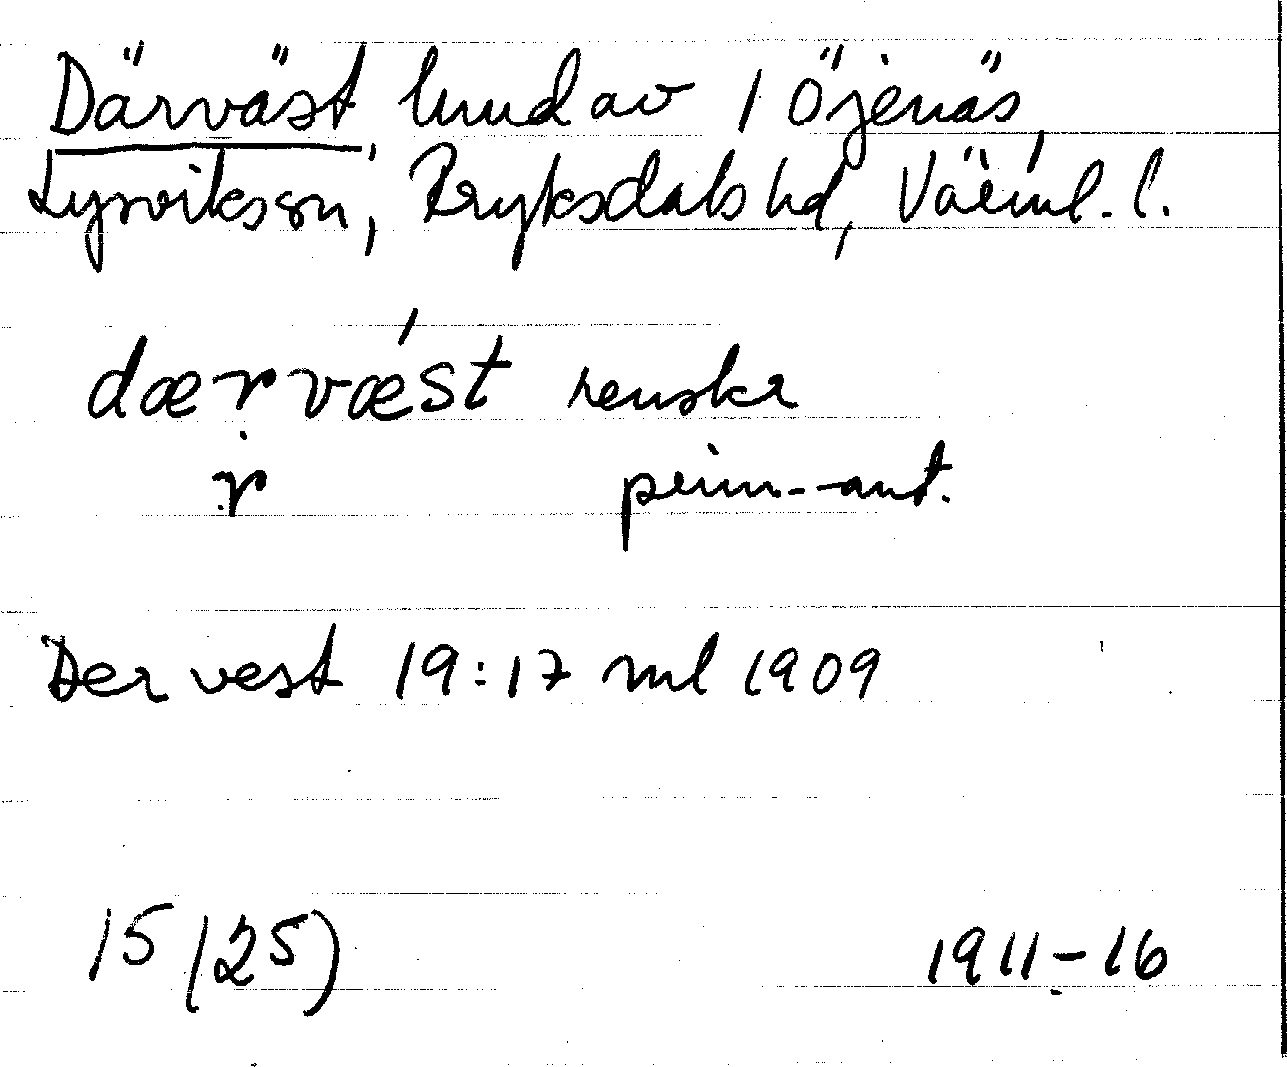 Därväst, hmd av 1 Öjenäs,
Lysvikssn, Fryksdals hd, Värml. l.
dærvǽst renskr
ṛ prim.-ant.
Der vest 19:17 ml 1909
15 (25) 1911-16